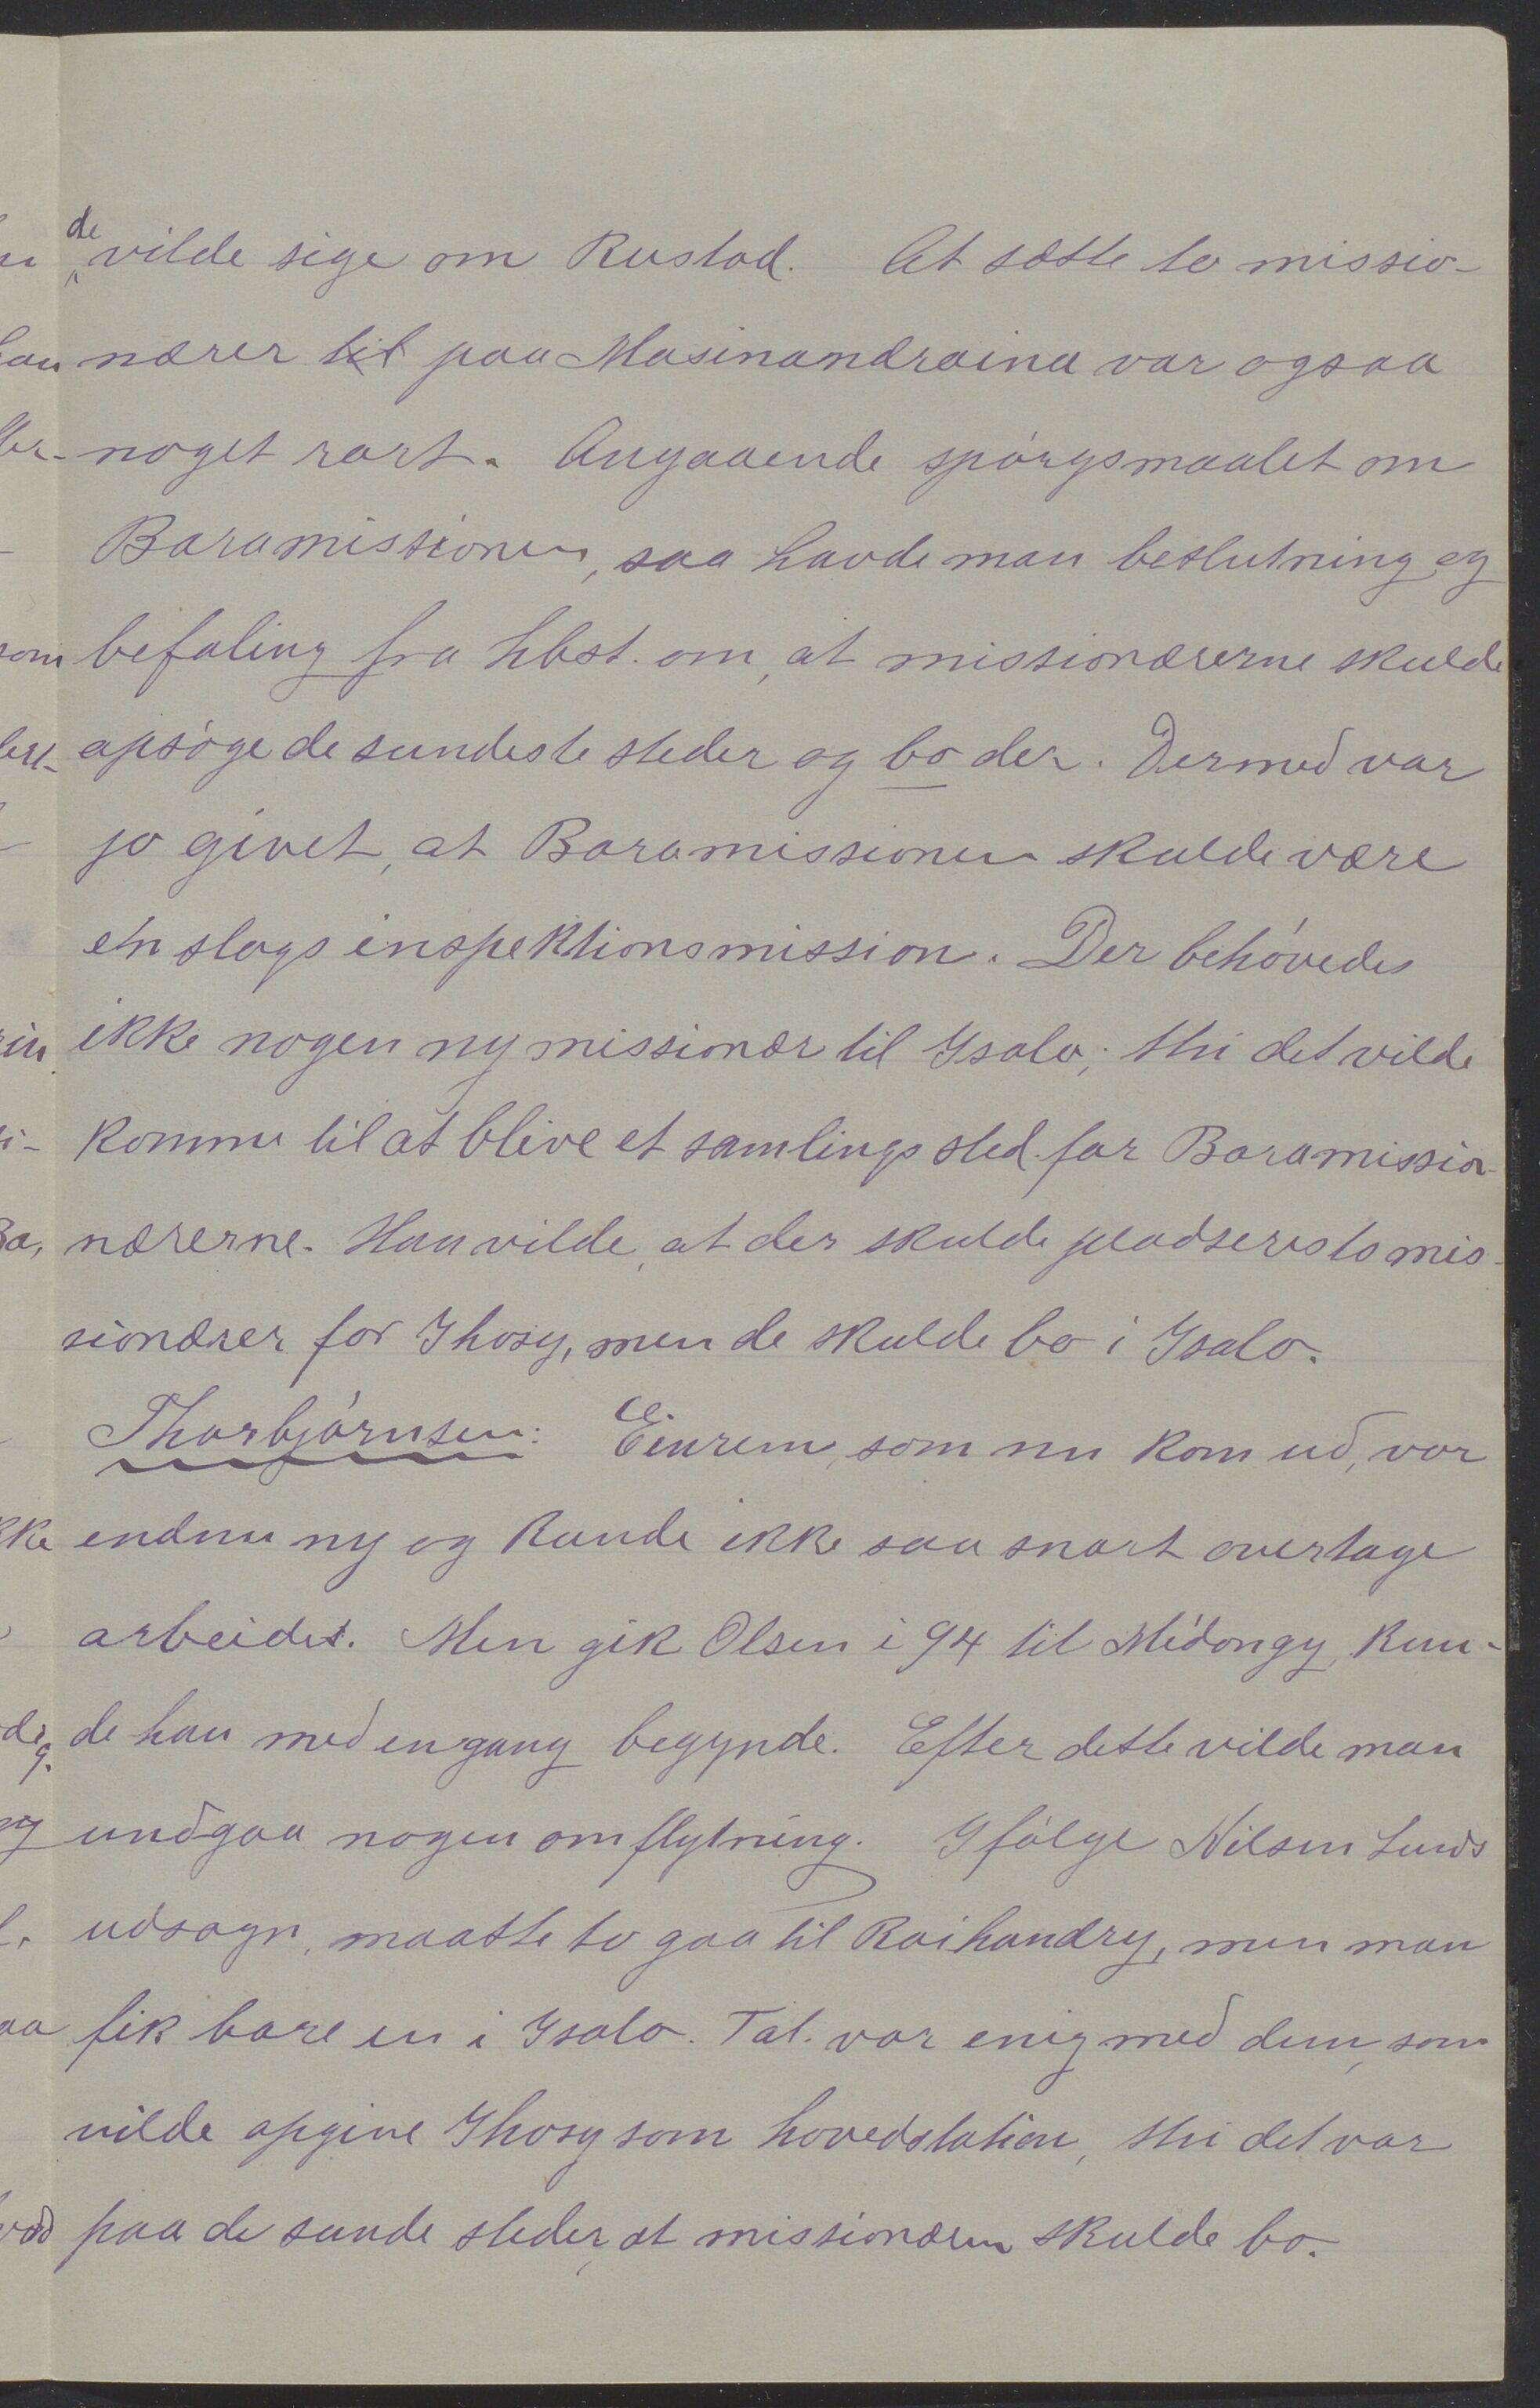 de
vilde sige om Rustad. At sætte to missio-
nærer til paa Masinandraina var ogsaa
noget rart. Angaaende spórgsmaalet om
Baramissionen, saa havde man beslutning og
befaling fra hbst. om, at missionærerne skulde
opsóge de sundeste steder og bo der. Dermed var
jo givet, at Baramissionen skulde være
én slags inspektionsmission. Der behóvedes
ikke nogen ny missionær til Ysalo; thi det vilde
komme til at blive et samlingssted for Baramissio-
nærerne. Han vilde, at der skulde pladseres to mis-
sionærer for Ihosy, men de skulde bo i Ysalo.
Thorbjórnsen: Einrem, som nu kom ud, var
endnu ny og kunde ikke saa snart overtage
arbeidet. Men gik Olsen i 94 til Midongy, kun-
de han med engang begynde. Efter dette vilde man
undgaa nogen omflytning. Ifólge Nilsen Lunds
udsagn, maatte to gaa til Raihandry, men man
fik bare en i Ysalo. Tal. var enig med dem, som
vilde opgive Ihosy som hovedstation, thi det var
paa de sunde steder, at missionæren skulde bo.